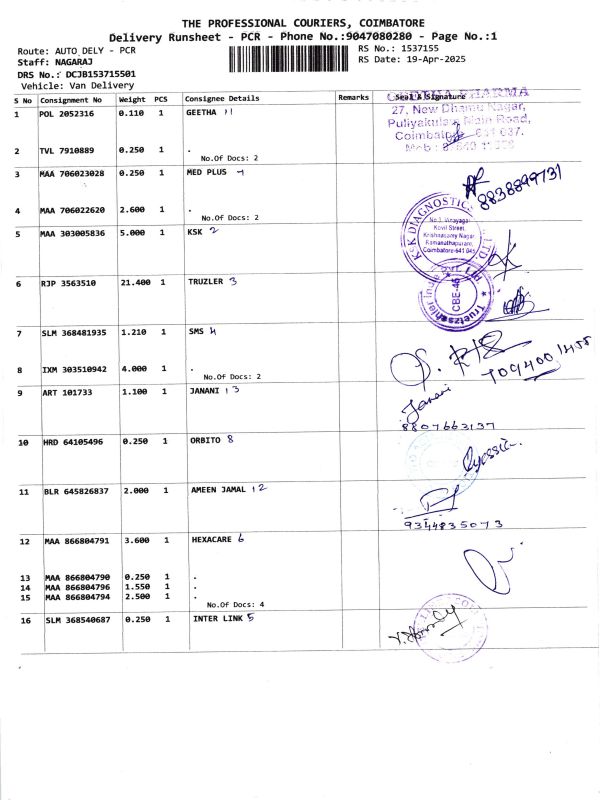 THE PROFESSIONAL COURIERS, COIMBATORE
Delivery Runsheet - PCR - Phone No.:9047080280 - Page No.:1
Route: AUTO_DELY - PCR
RS No.: 1537155
Staff: NAGARAJ
RS Date: 19-Apr-2025
DRS No.: DCJB153715501
Vehicle: Van Delivery
S No Consignment No Weight PCS Consignee Details Remarks Seal & Signature
PHARMA
1 POL 2052316 0.110 1 GEETHA 11
27, New Dhamu Nagar,
Puliyakulam Main Road,
Coimbatore 641 037.
2 TVL 7910889 0.250 1 .
No.Of Docs: 2
3 MAA 706023028 0.250 1 MED PLUS
8838899731
4 MAA 706022620 2.600 1 .
No.Of Docs: 2
5 MAA 303005836 5.000 1 KSK 2
KSK DIAGNOSTICS LTD.
Kovil Street,
Krishnasamy Nagar,
Ramanathapuram,
Coimbatore-641 045
6 RJP 3563510 21.400 1 TRUZLER 3
CBE-45
7 SLM 368481935 1.210 1 SMS 4
8 IXM 303510942 4.000 1 .
No.Of Docs: 2
9 ART 101733 1.100 1 JANANI 13
Janani
8807663137
10 HRD 64105496 0.250 1 ORBITO 8
11 BLR 645826837 2.000 1 AMEEN JAMAL 12
9344835073
12 MAA 866804791 3.600 1 HEXACARE 6
13 MAA 866804790 0.250 1 .
14 MAA 866804796 1.550 1 .
15 MAA 866804794 2.500 1 .
No.Of Docs: 4
16 SLM 368540687 0.250 1 INTER LINK 5